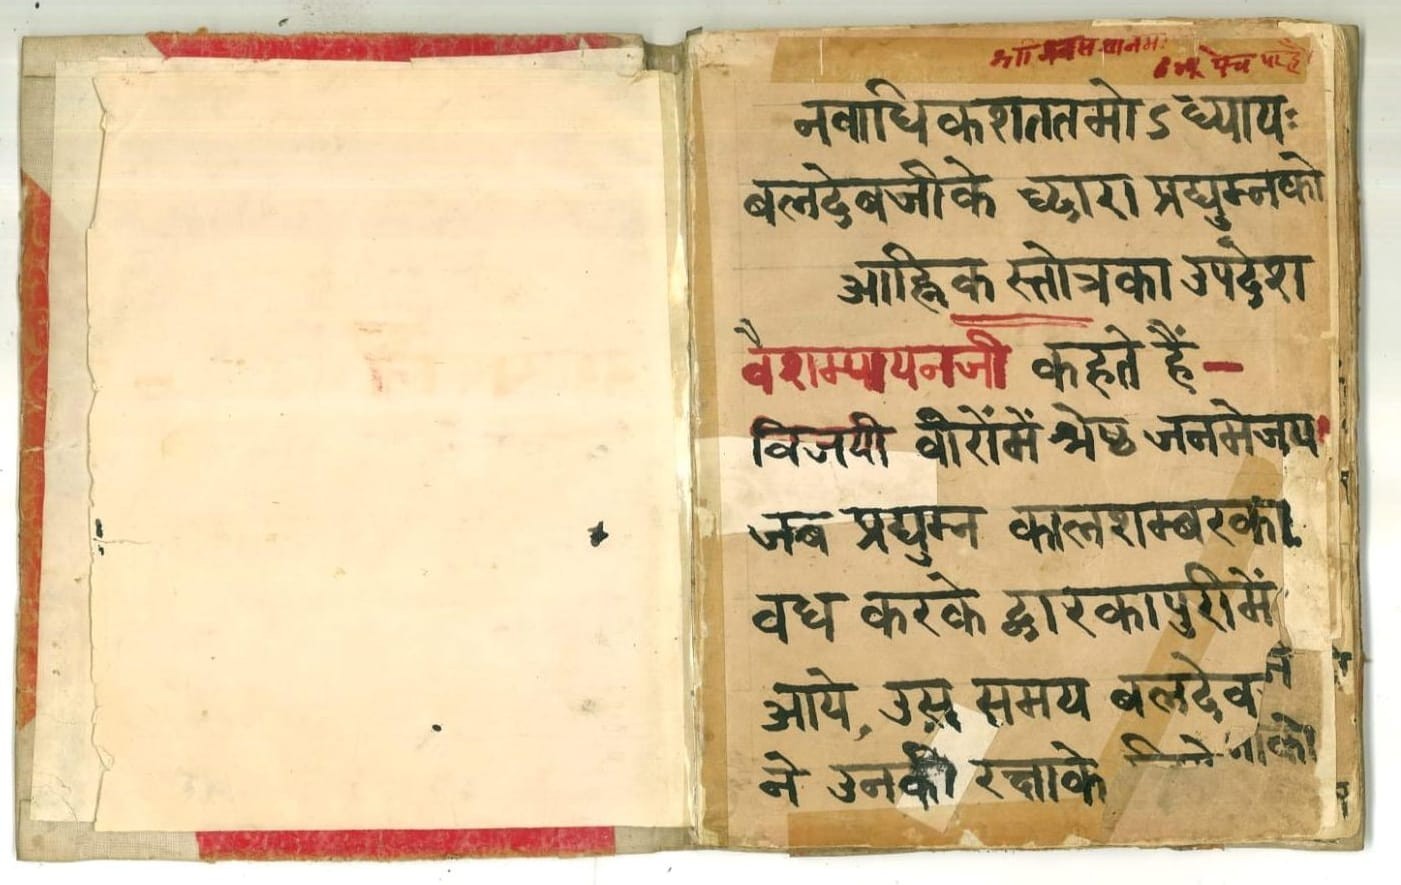 नवाधिकशततमोऽध्यायः
बलदेवजीके द्वारा प्रद्युम्नको
आह्निक स्तोत्रका उपदेश
वैशम्पायनजी कहते हैं—
विजयी वीरोंमें श्रेष्ठ जनमेजय
जब प्रद्युम्न कालशम्बरका
वध करके द्वारकापुरीमें
आये, उस समय बलदेव
ने उनकी रक्षाके